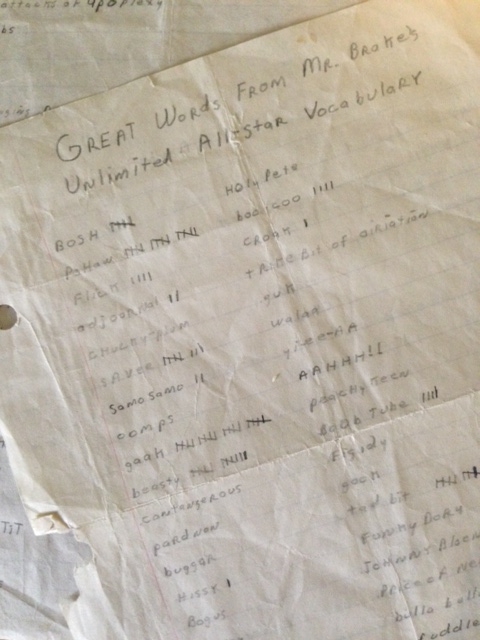 attacks of apoplexy
GREAT WORDS FROM MR. BROKE'S
UNLIMITED All-STAR VOCABULARY
BOSH
PSHAW
FLICK
adjournal
SAVER
samosamo
oomps
gaak
beasty
contenzerous
pardner
bugger
HISSY
Bogus
HOLY Pete
boo/coo
CROAK
trice Bit of airiation
guk
walan
yiee-AA
AAHHH!!
peachy Keen
Boob Tube
Figidy
gook
tad bit
Funny Dory
JOHNNY
PRICE of
bulla